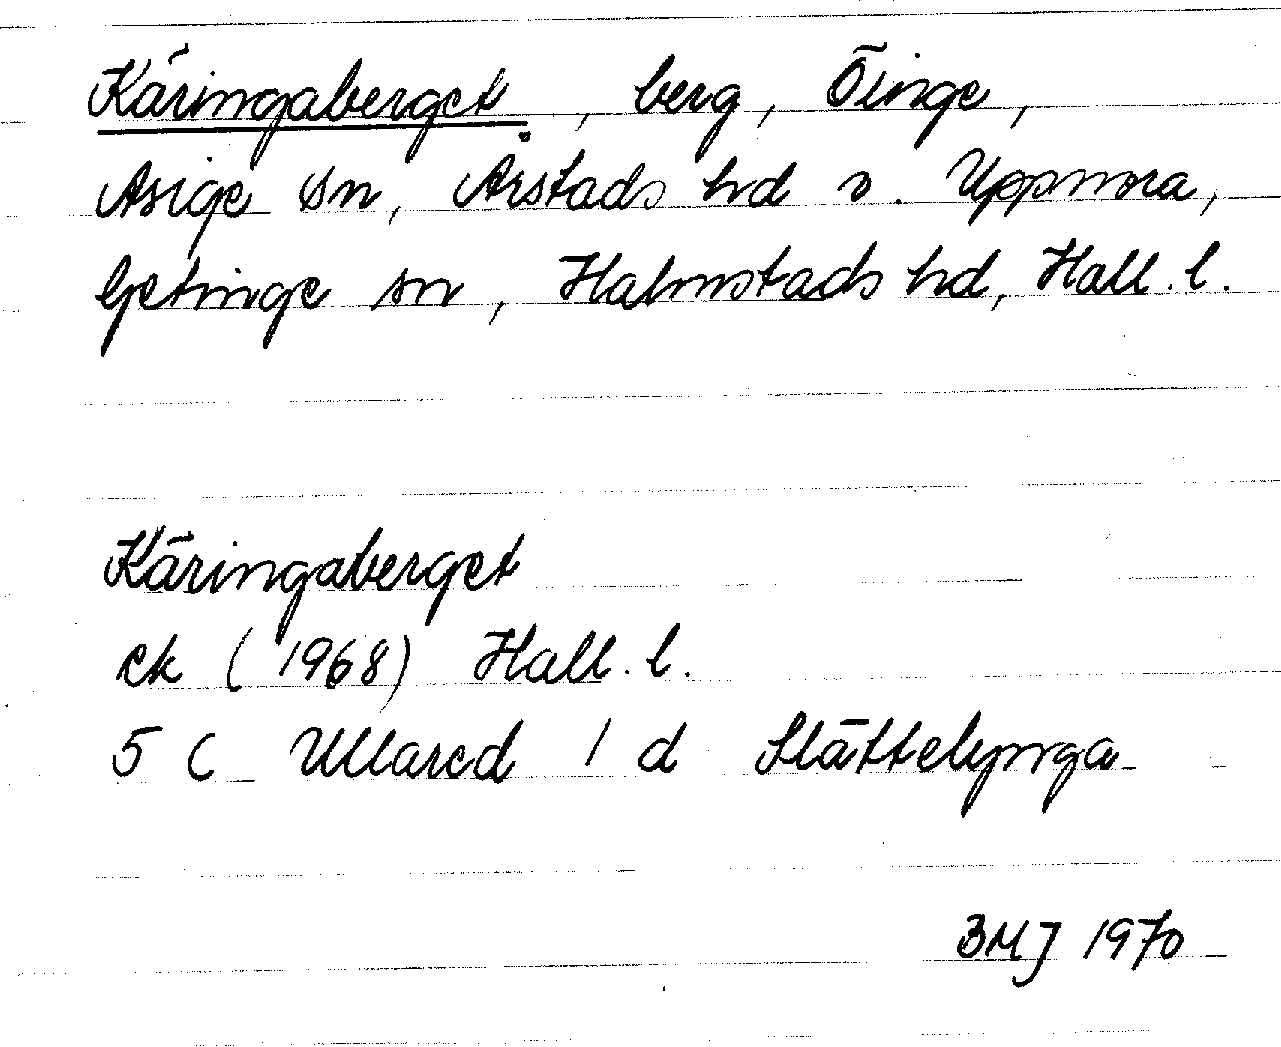 Käringaberget, berg, Öinge,
Asige sn, Årstads hd o. Uppnora,
Getinge sn, Halmstads hd, Hall. l.
Käringaberget
ek (1968) Hall. l.
5 C Ullared 1 d Slättelynga
BMJ 1970